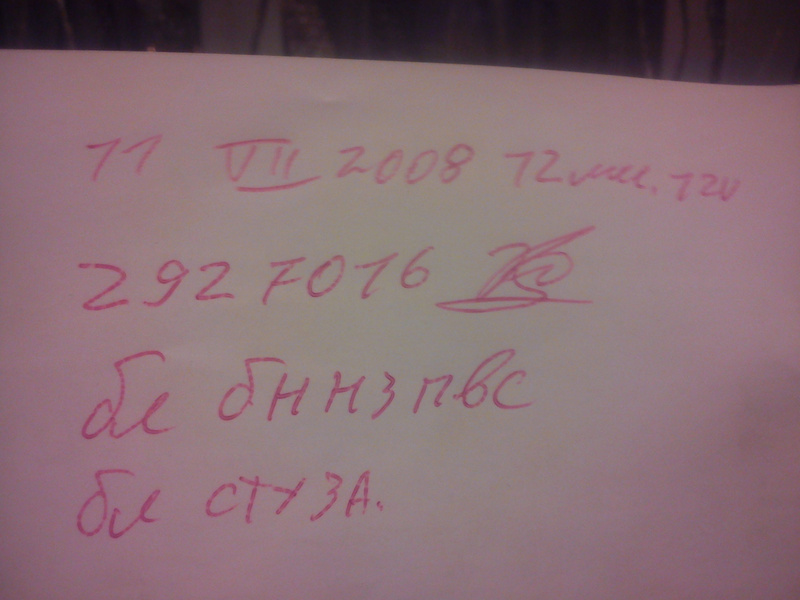 11 VII 2008 12 мин. 12v
2927016
бл бннзпвс
бл стузА.